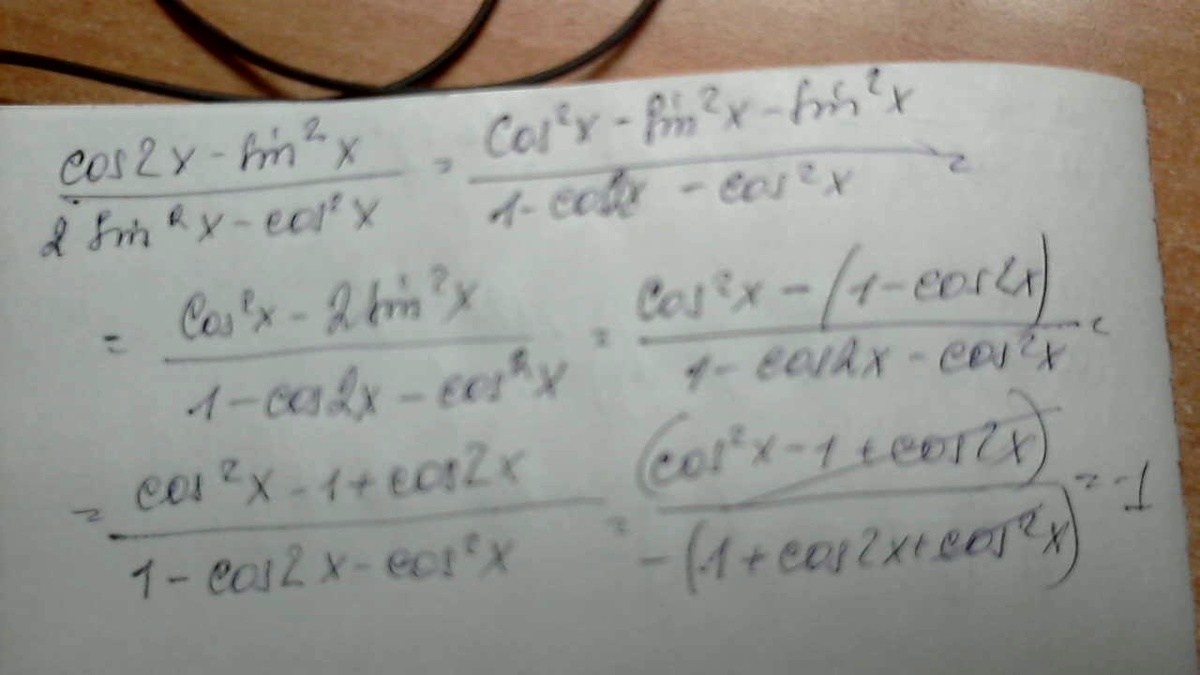 (cos2x - sin²x)/(2 sin²x - cos²x) = (cos²x - sin²x - sin²x)/(1 - cos2x - cos²x) =
= (cos²x - 2sin²x)/(1 - cos2x - cos²x) = (cos²x - (1 - cos2x))/(1 - cos2x - cos²x) =
= (cos²x - 1 + cos2x)/(1 - cos2x - cos²x) = (cos²x - 1 + cos2x)/-(1 + cos2x + cos²x) = -1